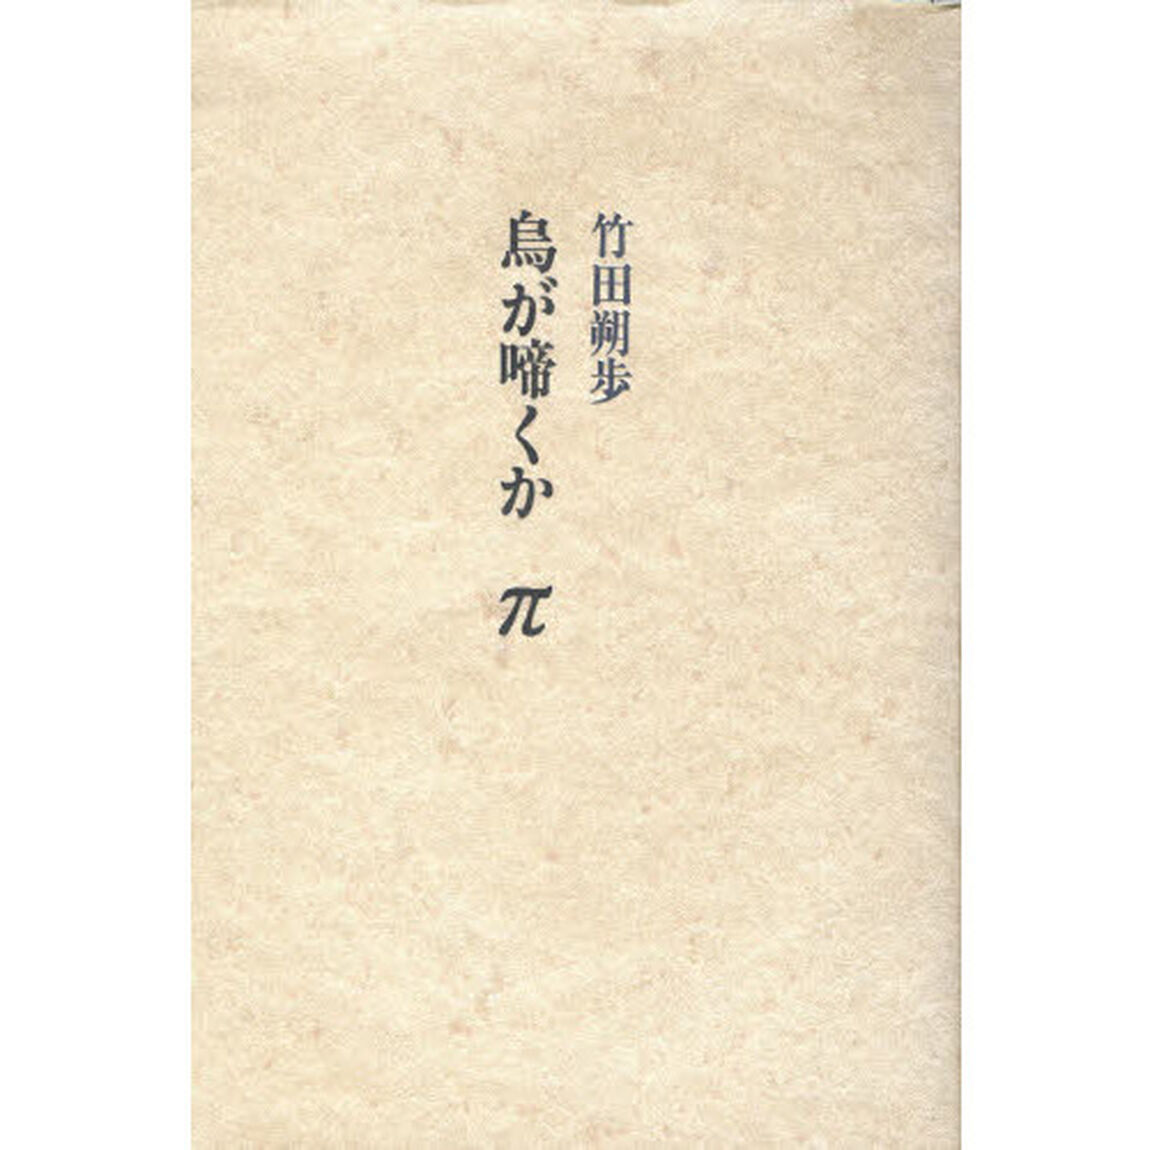 竹田朔歩
鳥が啼くか π